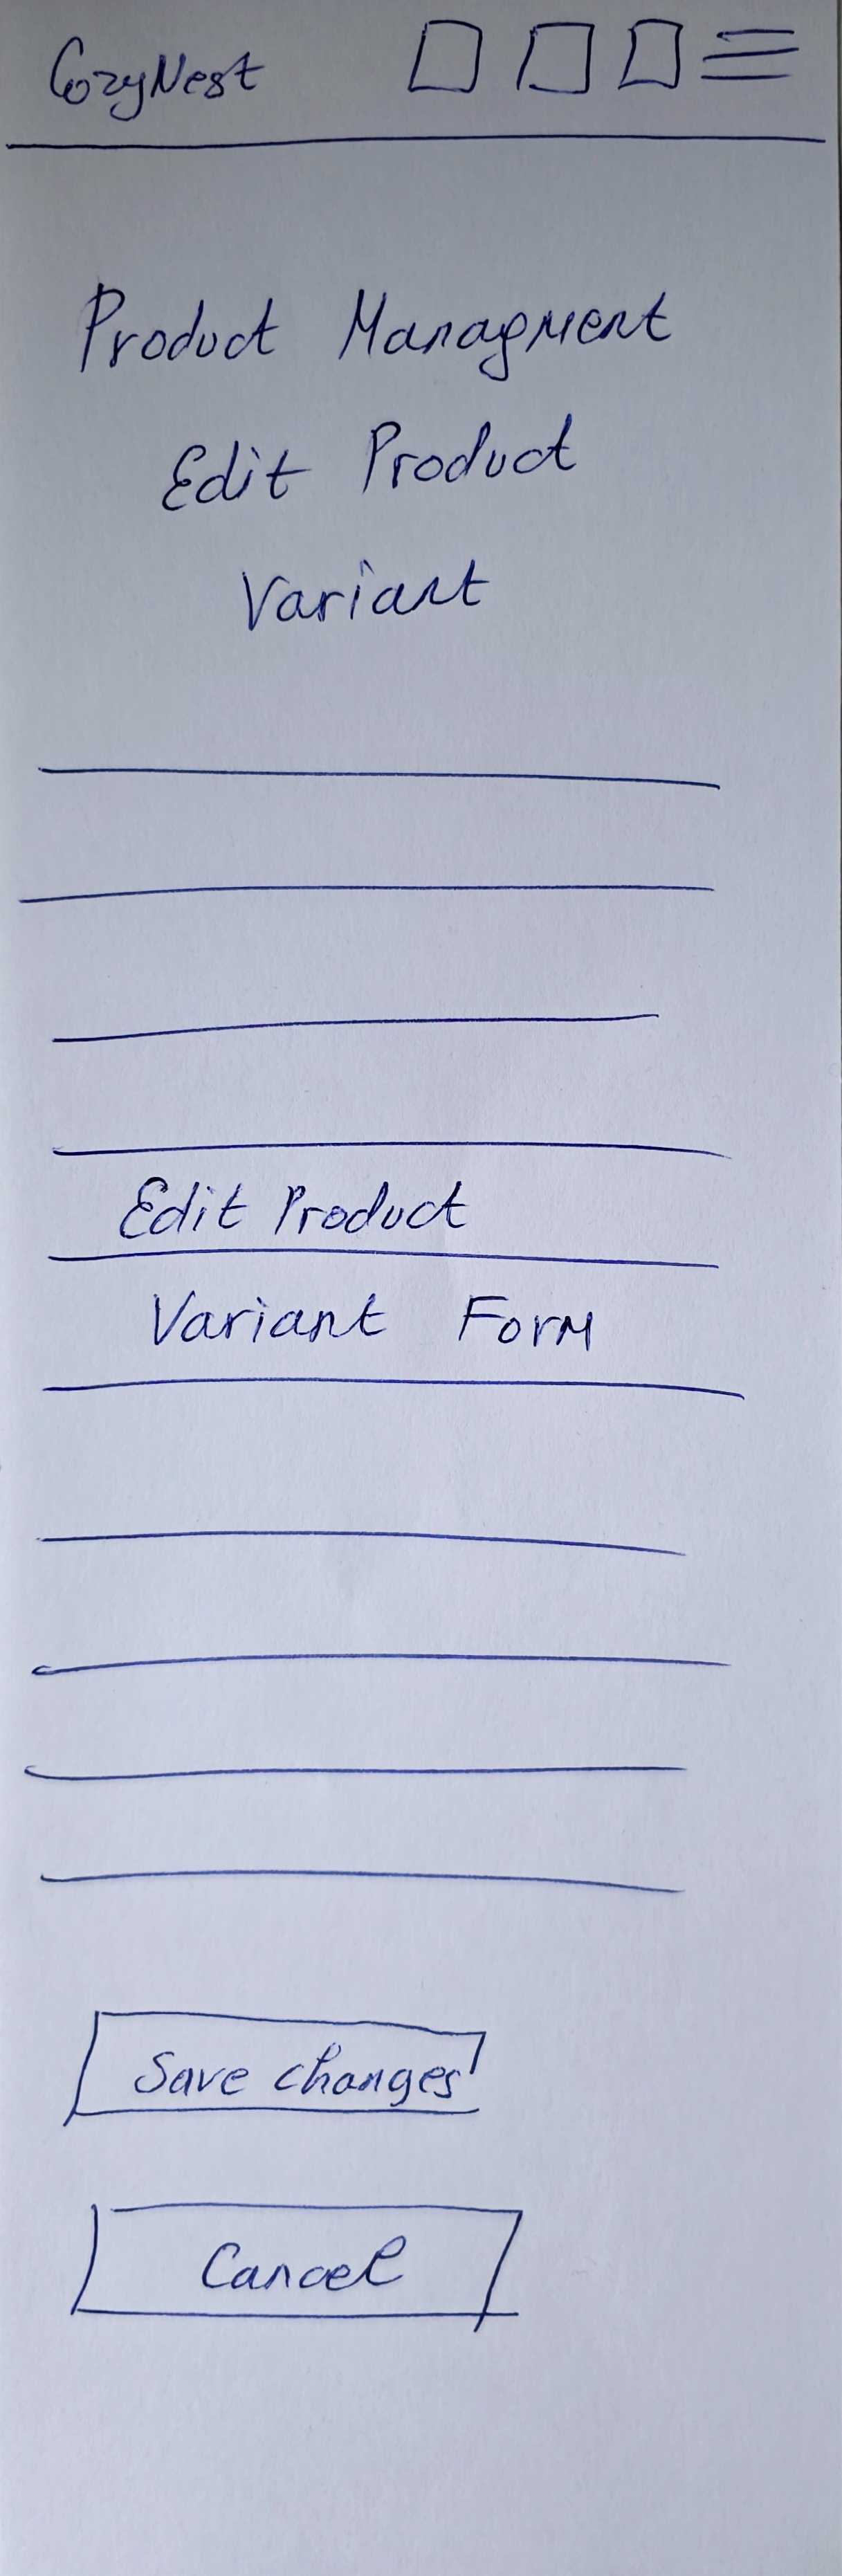 CozyNest
Product Managment
Edit Product
Variant
Edit Product
Variant Form
Save changes
Cancel